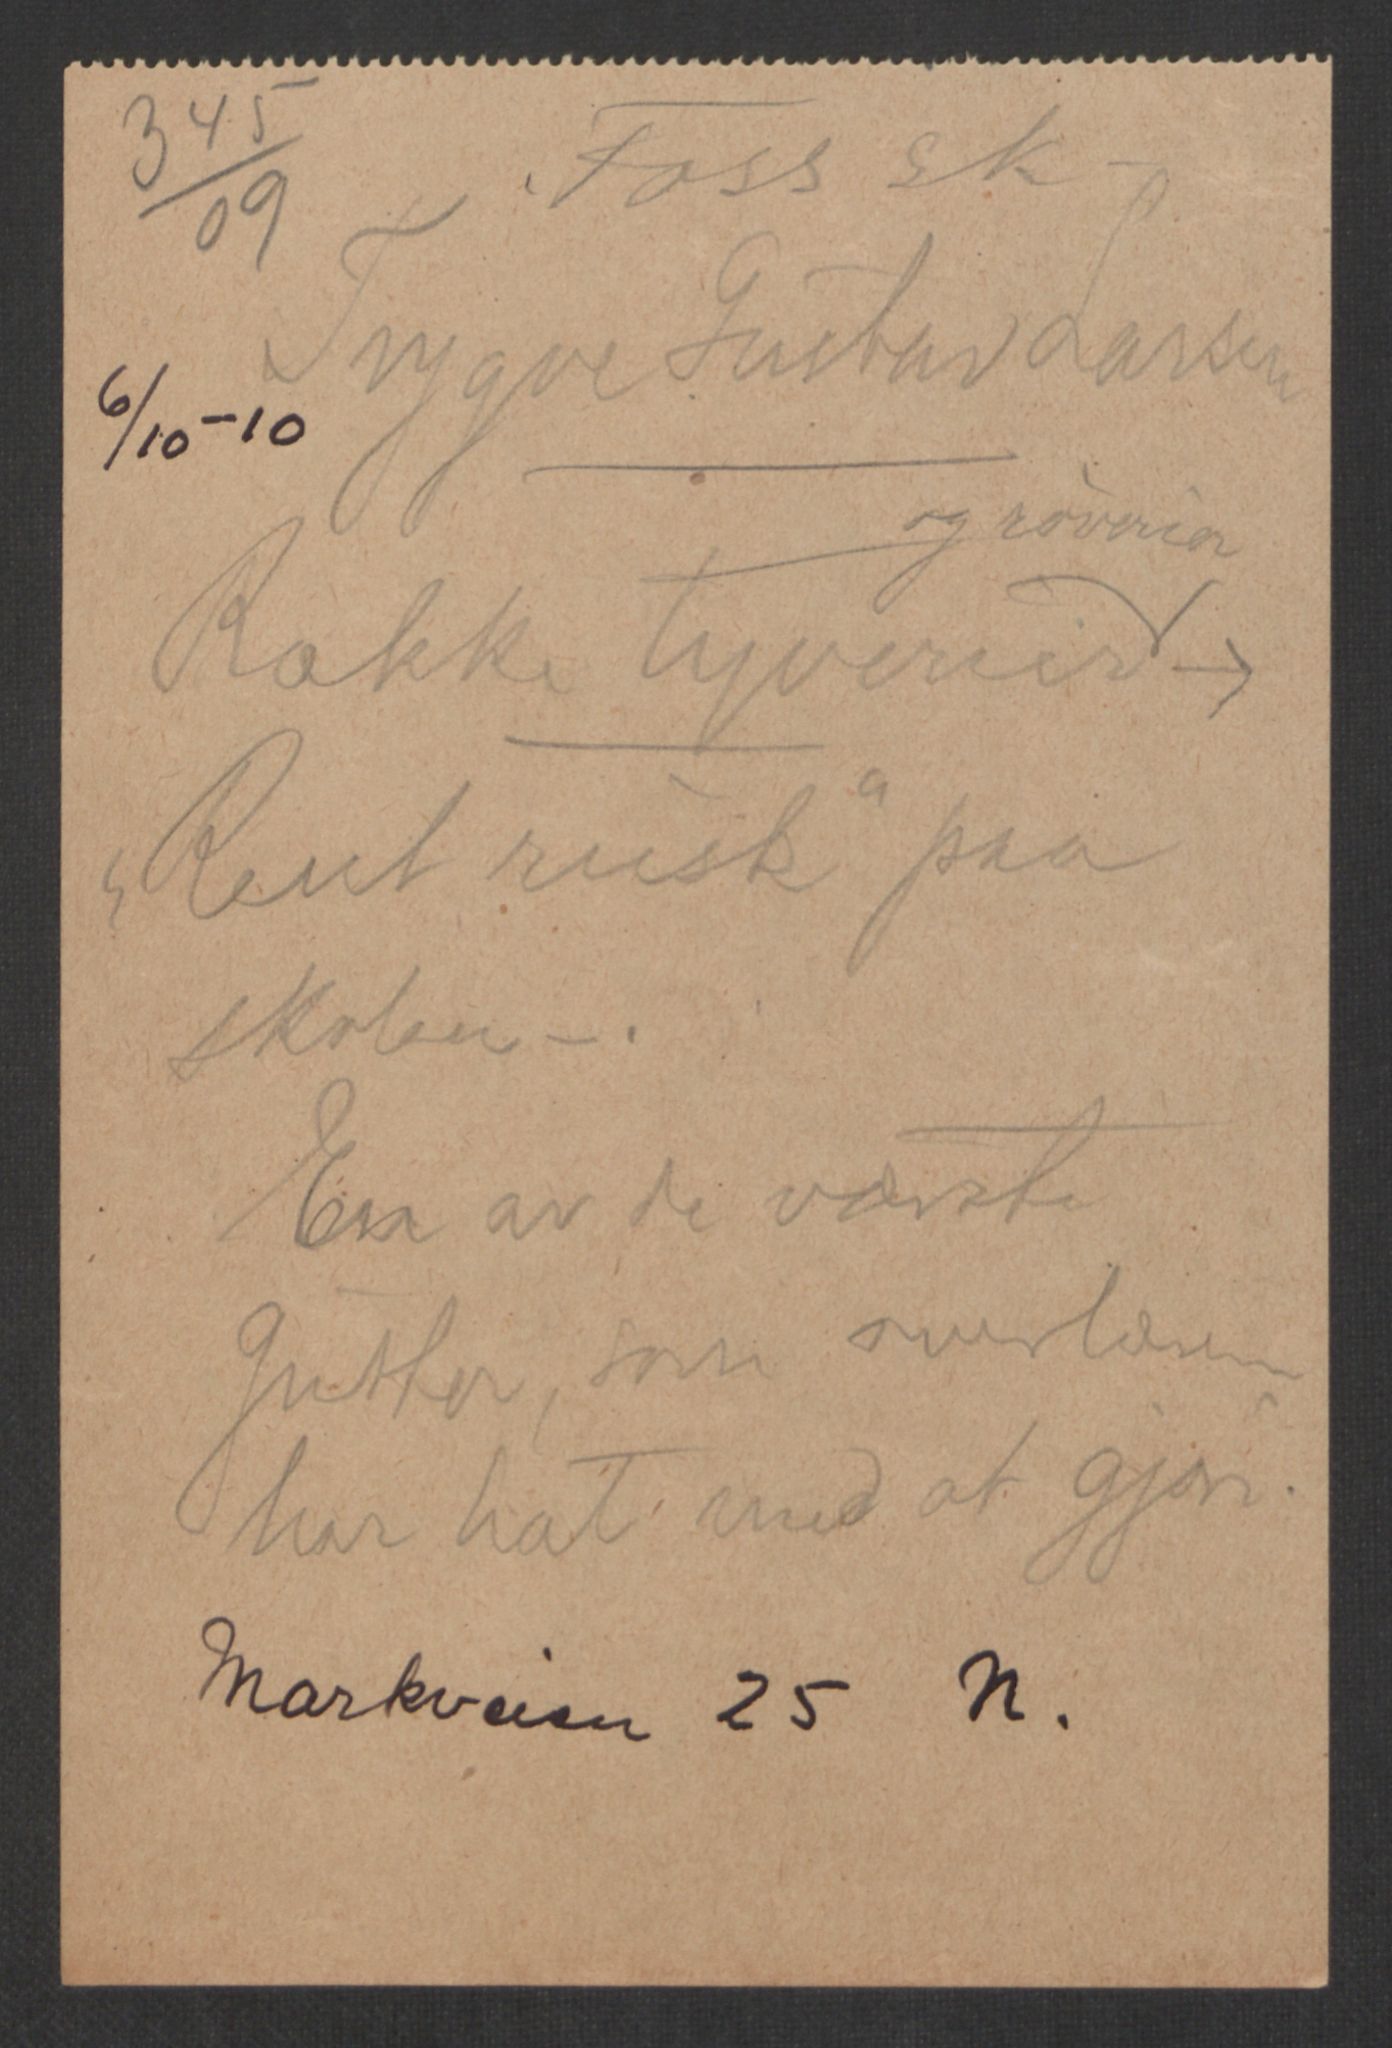 345/09
Foss sk -
Trygve Gustav Larsen
6/10-10
og röverier
Rakke tyverier →
„Rent rusk“ paa
skolen -.
En av de værste
gutter, som overlæreren
har hat med at gjøre.
Markveien 25 N.